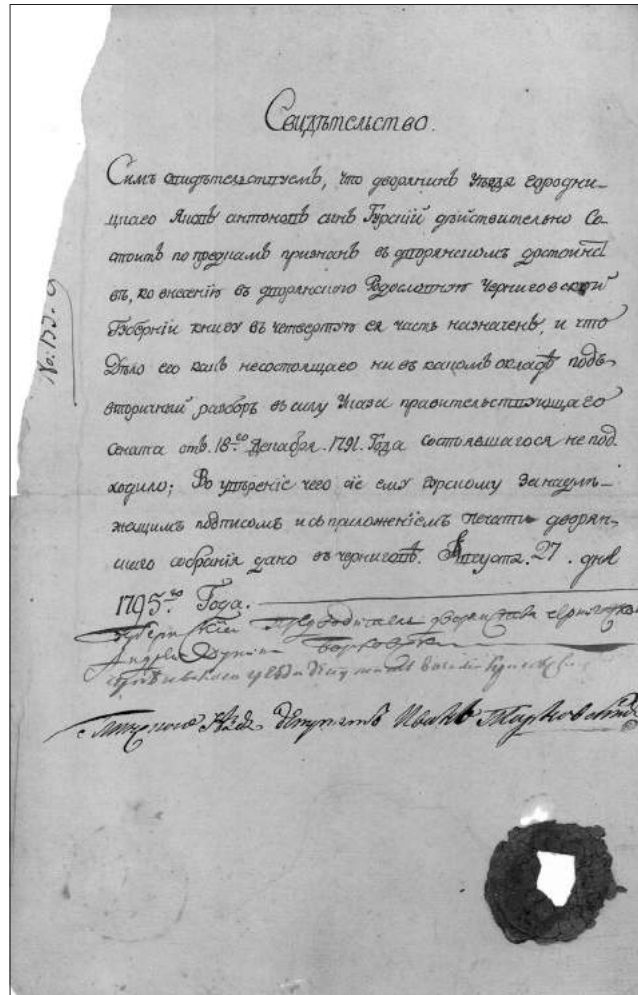 Свидѣтельство.
Симъ свидѣтельствуемъ, что дворянинъ уѣзда городни-
цкаго Яковъ антоновъ синъ Гурскій дѣйствительно Со-
стоитъ по предкамъ признанъ въ дворянскомъ достоинс
вѣ, ко внесенію въ дворянскую Родословную Черниговской
Губерніи книгу въ четвертую ея часть назначенъ, и что
Дѣло его какъ несостоящаго ни въ какомъ окладѣ подъ
вторичный разборъ въ силу Указа правительствующаго
Сената отъ 18го Декабря. 1791. Года состоявшагося не под
ходило; Во увѣреніе чего сіе ему Гурскому за надлѣ-
жащимъ подписомъ и съ приложеніемъ печати дворян-
скаго собранія дано въ черниговѣ. Августа. 27. дня
1795го Года.
Губернскій предводитель дворянства
Андрей
депутатъ Василій
уѣзда депутатъ Иванъ Тарновскій
No: 153